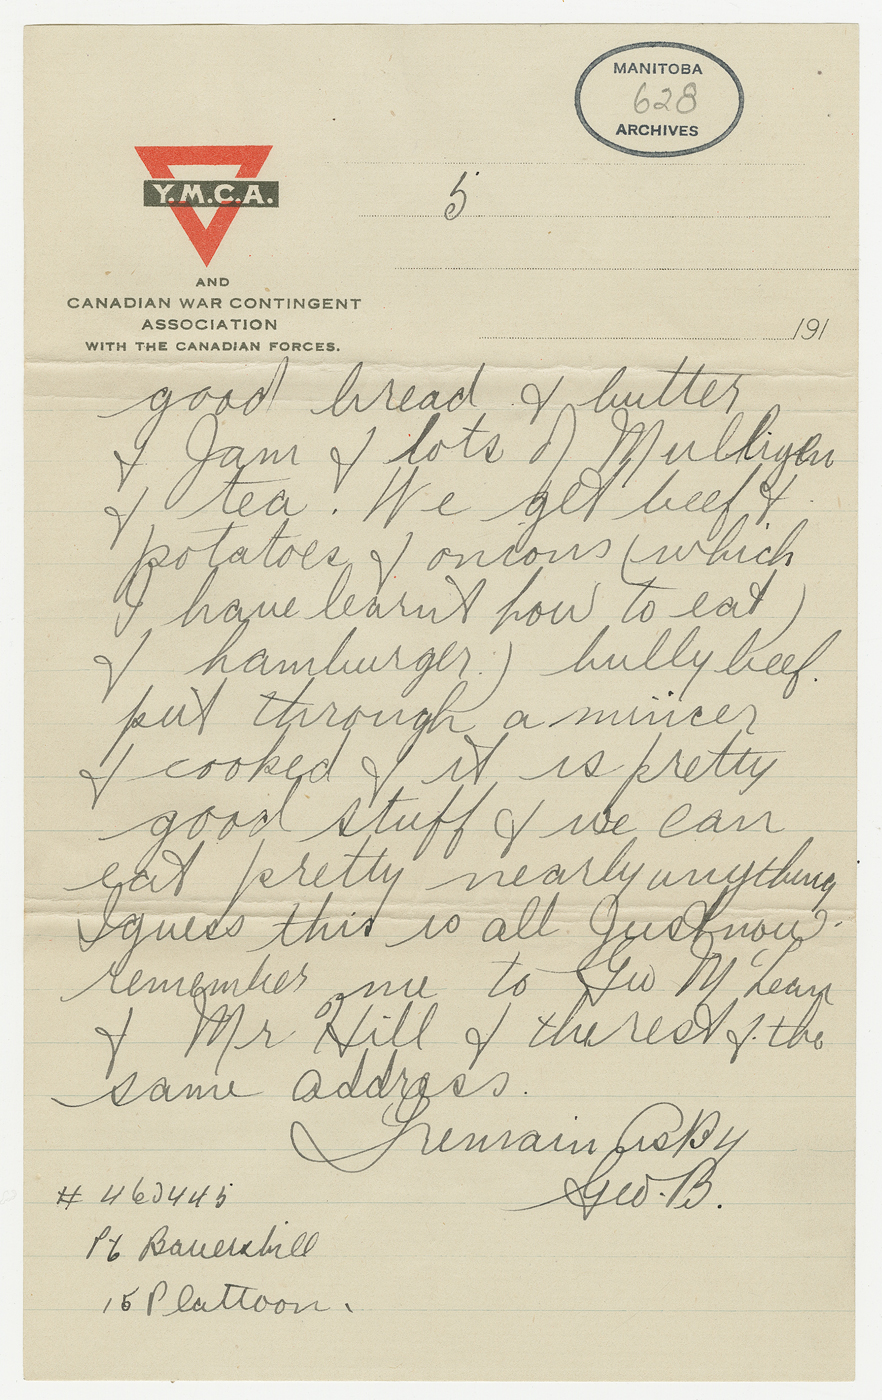 MANITOBA
628
ARCHIVES
Y.M.C.A.
5
AND
CANADIAN WAR CONTINGENT
ASSOCIATION
WITH THE CANADIAN FORCES.
191
good bread & butter
& Jam & lots of Mulligen
& tea. We get beef &
potatoes & onions (which
I have learnt how to eat)
& hamburger.) bully beef.
put through a mincer
& cooked & it is pretty
good stuff & we can
eat pretty nearly anything
I guess this is all Just now.
remember me to Geo McLean
& Mr Hill & the rest & the
same address.
I remain
Geo. B.
Pt
15 Plattoon.